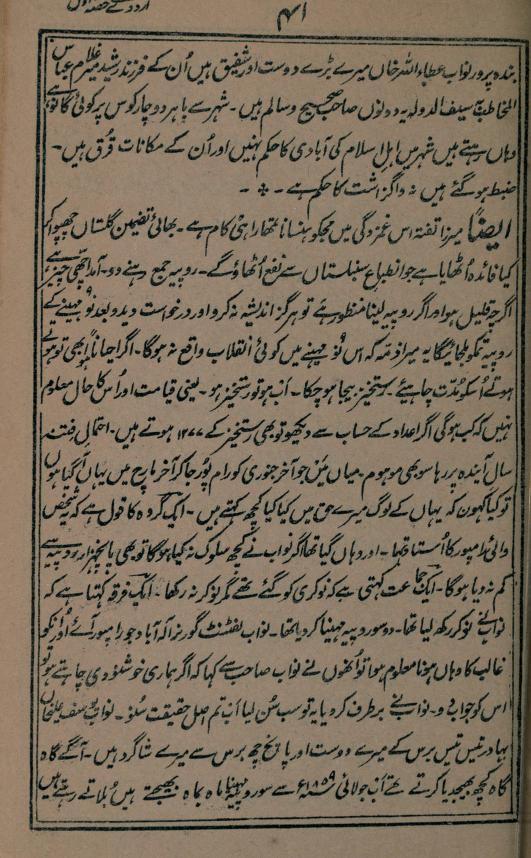 اردوئے معلیٰ حصہ اول
۴۱
بندہ پرور نواب عطاء اللہ خاں میرے بڑے دوست اور شفیق ہیں اُن کے فرزند رشید میر غلام عباس
المخاطب بہ سیف الدولہ یہ دونوں صاحب صحیح وسالم ہیں۔ شہر سے باہر دو چار کوس پر کوئی گانو ہے
وہاں رہتے ہیں شہر میں اہل اسلام کی آبادی کا حکم نہیں اور اُن کے مکانات قرق ہیں۔
ضبط ہو گئے ہیں نہ واگزاشت کا حکم ہے۔
ایضاً میرزا تفتہ اس غمزدگی میں مجھکو ہنسانا تمھارا ہی کام ہے۔ بھائی تضمین گلستاں چھپوا کر
کیا فائدہ اُٹھایا ہے جو انطباع سنبلستاں سے نفع اُٹھاؤ گے۔ روپیہ جمع رہنے دو۔ آمد اچھی چیز ہے
اگرچہ قلیل ہو اور اگر روپیہ لینا منظور ہے تو ہرگز اندیشہ نہ کرو اور درخواست دیدو بعد نو مہینے کے
روپیہ تمکو ملجائیگا یہ میرا ذمہ کہ اس نو مہینے میں کوئی انقلاب واقع نہ ہوگا۔ اگر احیاناً ہوا بھی تو ہوتے
ہوتے اُسکو مدّت چاہیئے۔ رستخیز بیجا ہو چکا۔ اب ہو تو رستخیز ہو۔ یعنی قیامت اور اُس کا حال معلوم
نہیں کہ کب ہوگی اگر اعداد کے حساب سے دیکھو تو بھی رستخیز کے ۱۲۷۷ ہوتے ہیں۔ احتمالِ فتنہ
سال آیندہ پر رہا سو بھی موہوم۔ میاں میں جو آخر جنوری کو رام پور جا کر آخر مارچ میں یہاں آ گیا ہوں
تو کیا کہوں کہ یہاں کے لوگ میرے حق میں کیا کیا کچھ کہتے ہیں۔ ایک گروہ کا قول ہے کہ یہ شخص
والی رامپور کا اُستاد تھا۔ اور وہاں گیا تھا اگر نواب نے کچھ سلوک نہ کیا ہوگا تو بھی پانچہزار روپیہ سے
کم نہ دیا ہوگا۔ ایک جماعت کہتی ہے کہ نوکری کو گئے تھے مگر نوکر نہ رکھا۔ ایک فرقہ کہتا ہے کہ
نواب نے نوکر رکھ لیا تھا۔ دو سو روپیہ مہینا کر دیا تھا۔ نواب لفٹنٹ گورنر الہ آباد جو رامپور آئے اور اُنکو
غالب کا وہاں ہونا معلوم ہوا تو اُنھوں نے نواب صاحب سے کہا کہ اگر ہماری خوشنودی چاہتے ہو تو
اس کو جواب دو۔ نواب نے برطرف کر دیا یہ تو سب سُن لیا اب تم اصل حقیقت سُنو۔ نواب یوسف علیخاں
بہادر تیس تیس برس کے میرے دوست اور پانچ چھ برس سے میرے شاگرد ہیں۔ آگے گاہ
گاہ کچھ بھیجدیا کرتے تھے اب جولائی ۱۸۵۹ء سے سو روپیہ مہینا ماہ بماہ بھیجتے ہیں بُلاتے رہتے ہیں